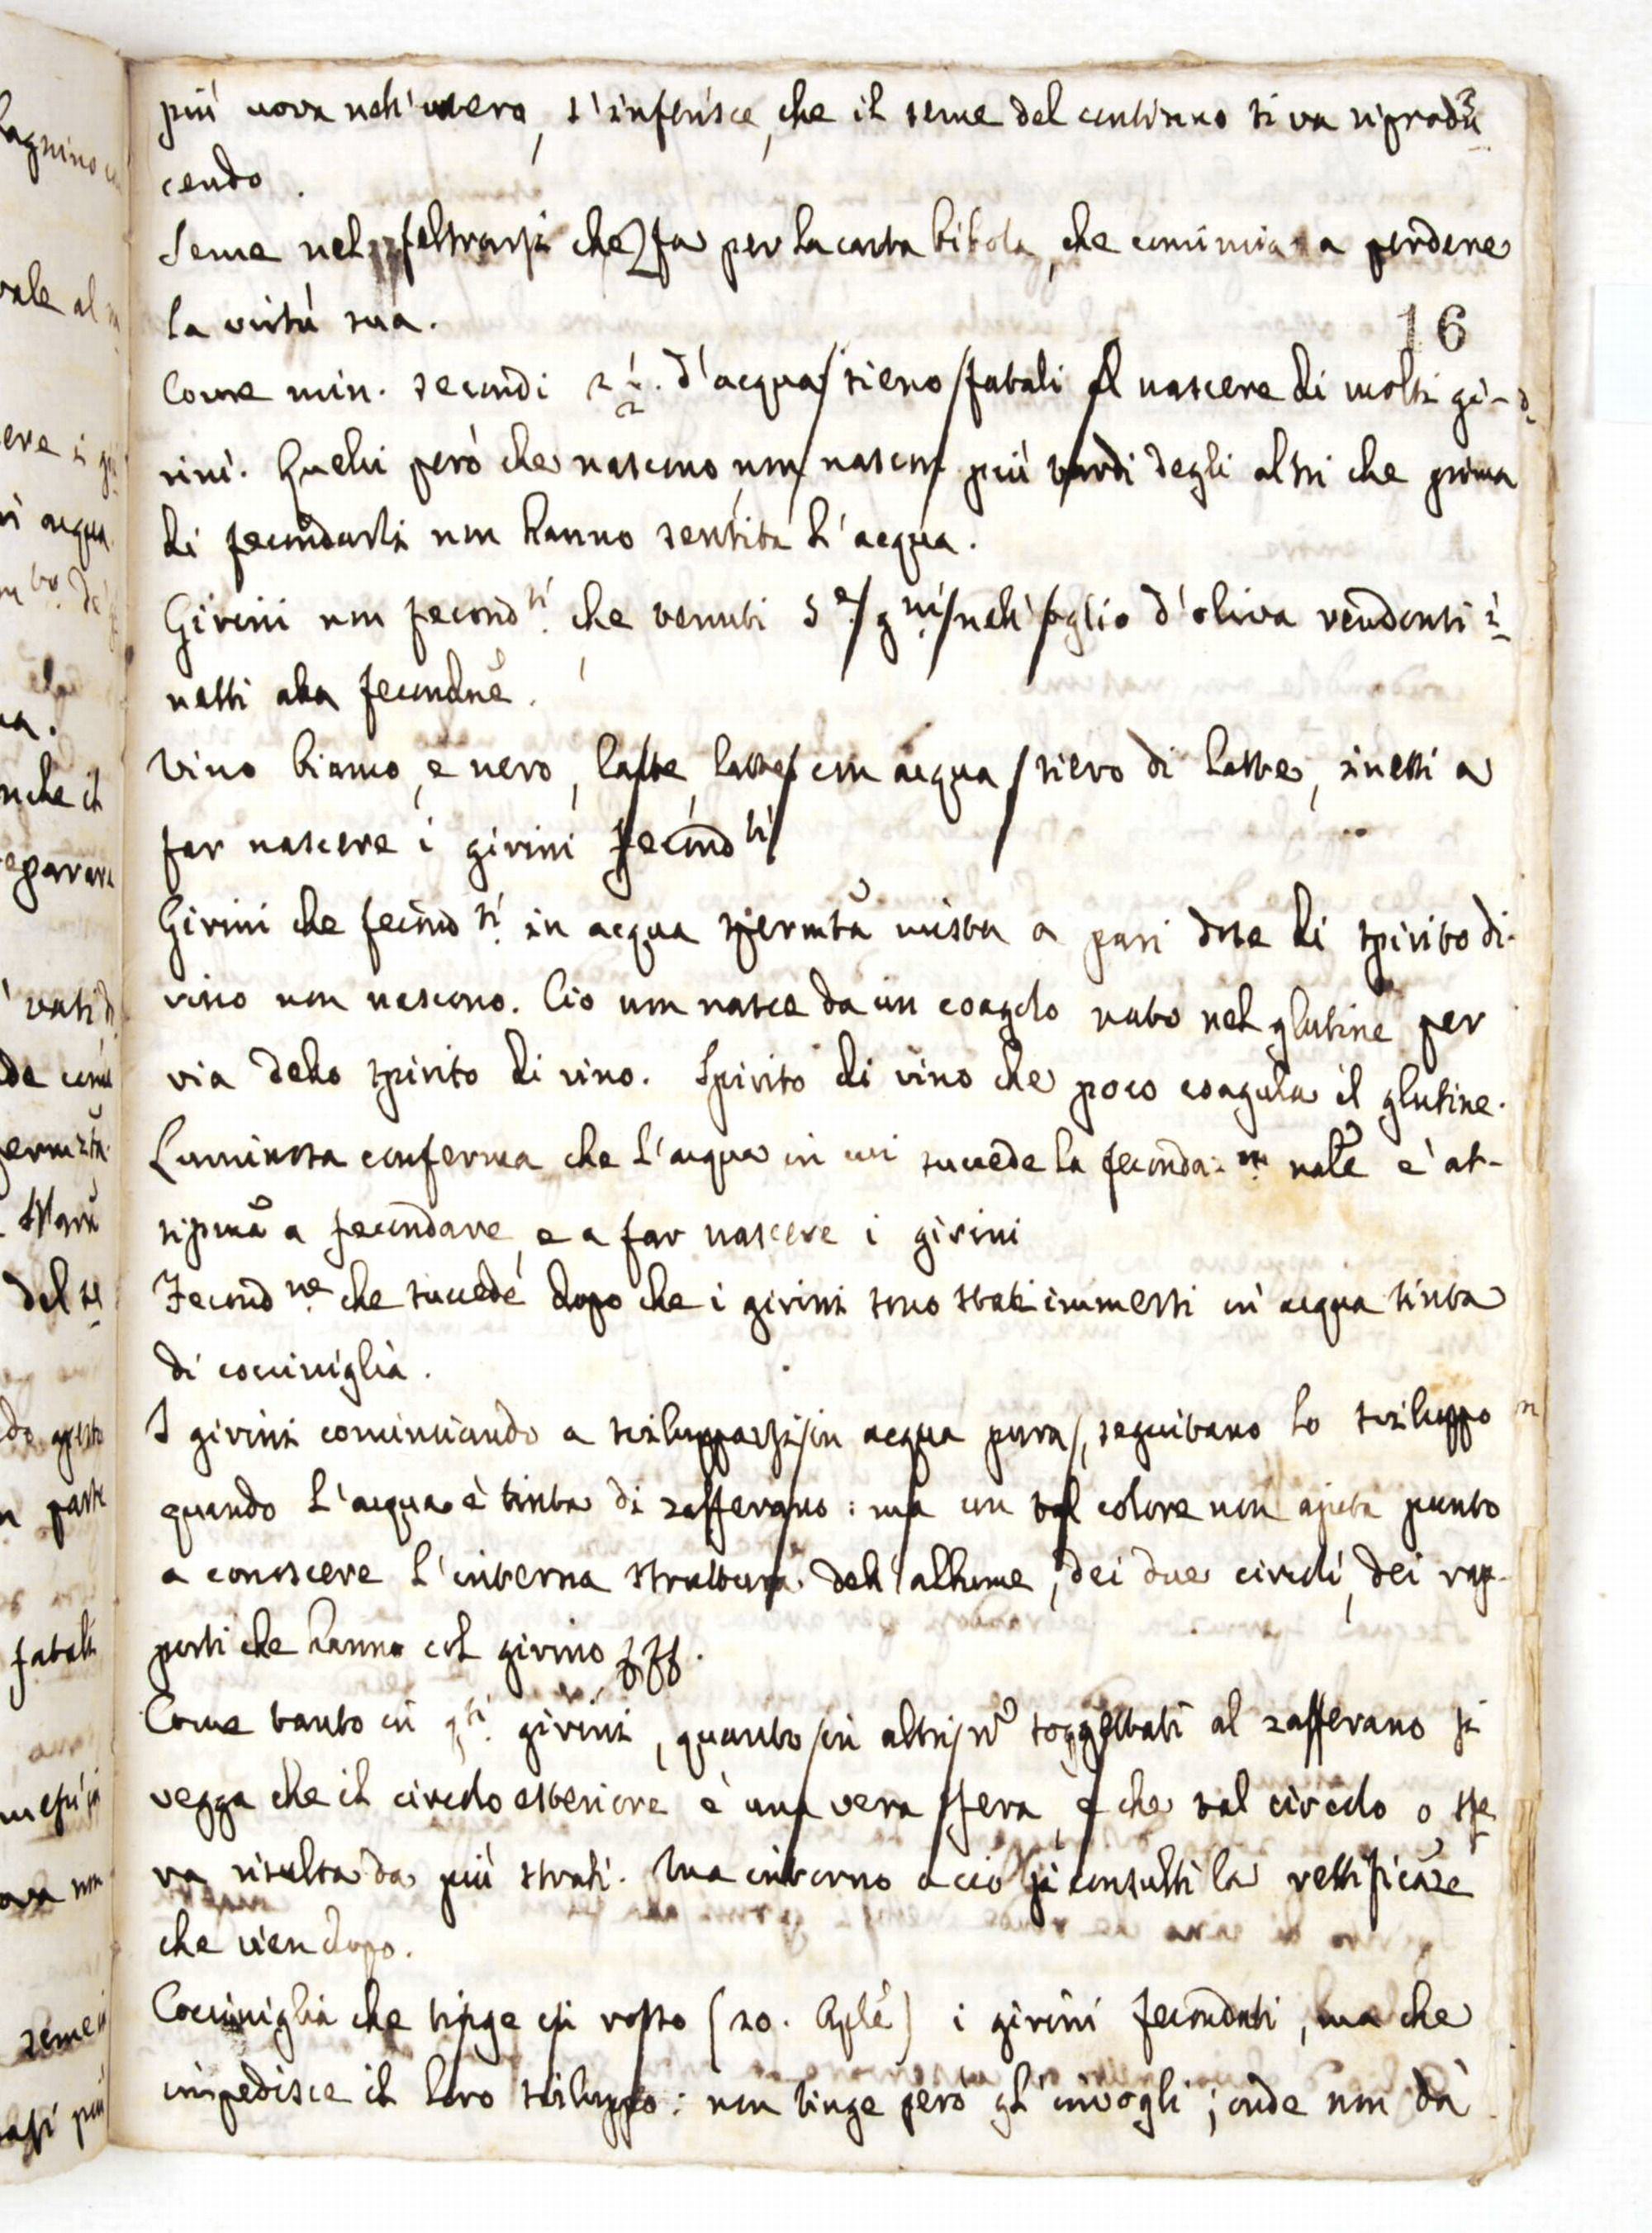 più uova nell'utero, s'inferisce, che il seme del continuo si va riprodu
cendo.
Seme nel feltrarsi che fa per la carta bibola, che comincia a perdere
la virtù sua.
16
Come min. secondi 2 1/2. d'acqua sieno fatali al nascere di molti gi-
rini. Quelli però che nascono non nascon più tardi degli altri che prima
di fecondarsi non hanno sentita l'acqua.
Girini non fecond.ti che tenuti 5 e g.ni nell'oglio d'oliva rendonsi i
netti alla fecondne.
Vino bianco, e nero, latte, latte con acqua, siero di latte, inetti a
far nascere i girini fecond.ti
Girini che fecond.ti in acqua spermta mista a pari dose di spirito di
vino non nascono. Ciò non nasce da un coagolo nato nel glutine per
via dello spirito di vino. Spirito di vino che poco coagula il glutine.
Luminosa conferma che l'acqua in cui succede la feconda.ne nale è at-
tissma a fecondare, e a far nascere i girini
Fecond.ne che succede dopo che i girini sono stati immersi in acqua tinta
di cocciniglia.
I girini cominciando a svilupparsi in acqua pura, seguitano lo sviluppo
quando l'acqua è tinta di zafferano: ma un tal colore non ajuta punto
a conoscere l'interna struttura dell'albume, dei due circoli, dei rap-
porti che hanno col girino
Come tanto in q.ti girini, quanto in altri soggettati al zafferano si
vegga che il circolo esteriore è una vera sfera, e che tal circolo o sfe
ra risulta da più strati. Ma intorno a ciò si consulti la rettificaze
che vien dopo.
Cocciniglia che tinge in rosso (20. Aple) i girini fecondati, ma che
impedisce il loro sviluppo: non tinge però gl'invogli; onde non dà